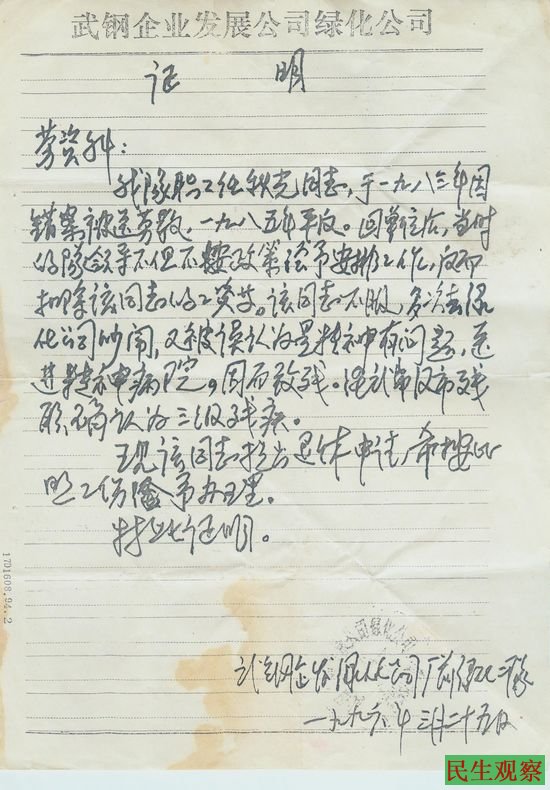 武钢企业发展公司绿化公司
证 明
劳资科：
我队职工任铁光同志，于一九八三年因
错案被送劳教，一九八五年平反。回单位后，当时
的队领导不但不按政策给予安排工作，反而
扣除该同志的工资。该同志不服，多次去绿
化公司吵闹，又被误认为是精神有问题，送
进精神病院。因而致残。经武汉市残
联确认为三级残疾。
现该同志提出退休申请，希按
工伤给予办理。
特此证明。
武钢企发绿化公司厂前绿化二队
一九九六年三月二十五日
17D1608.94.2
民生观察